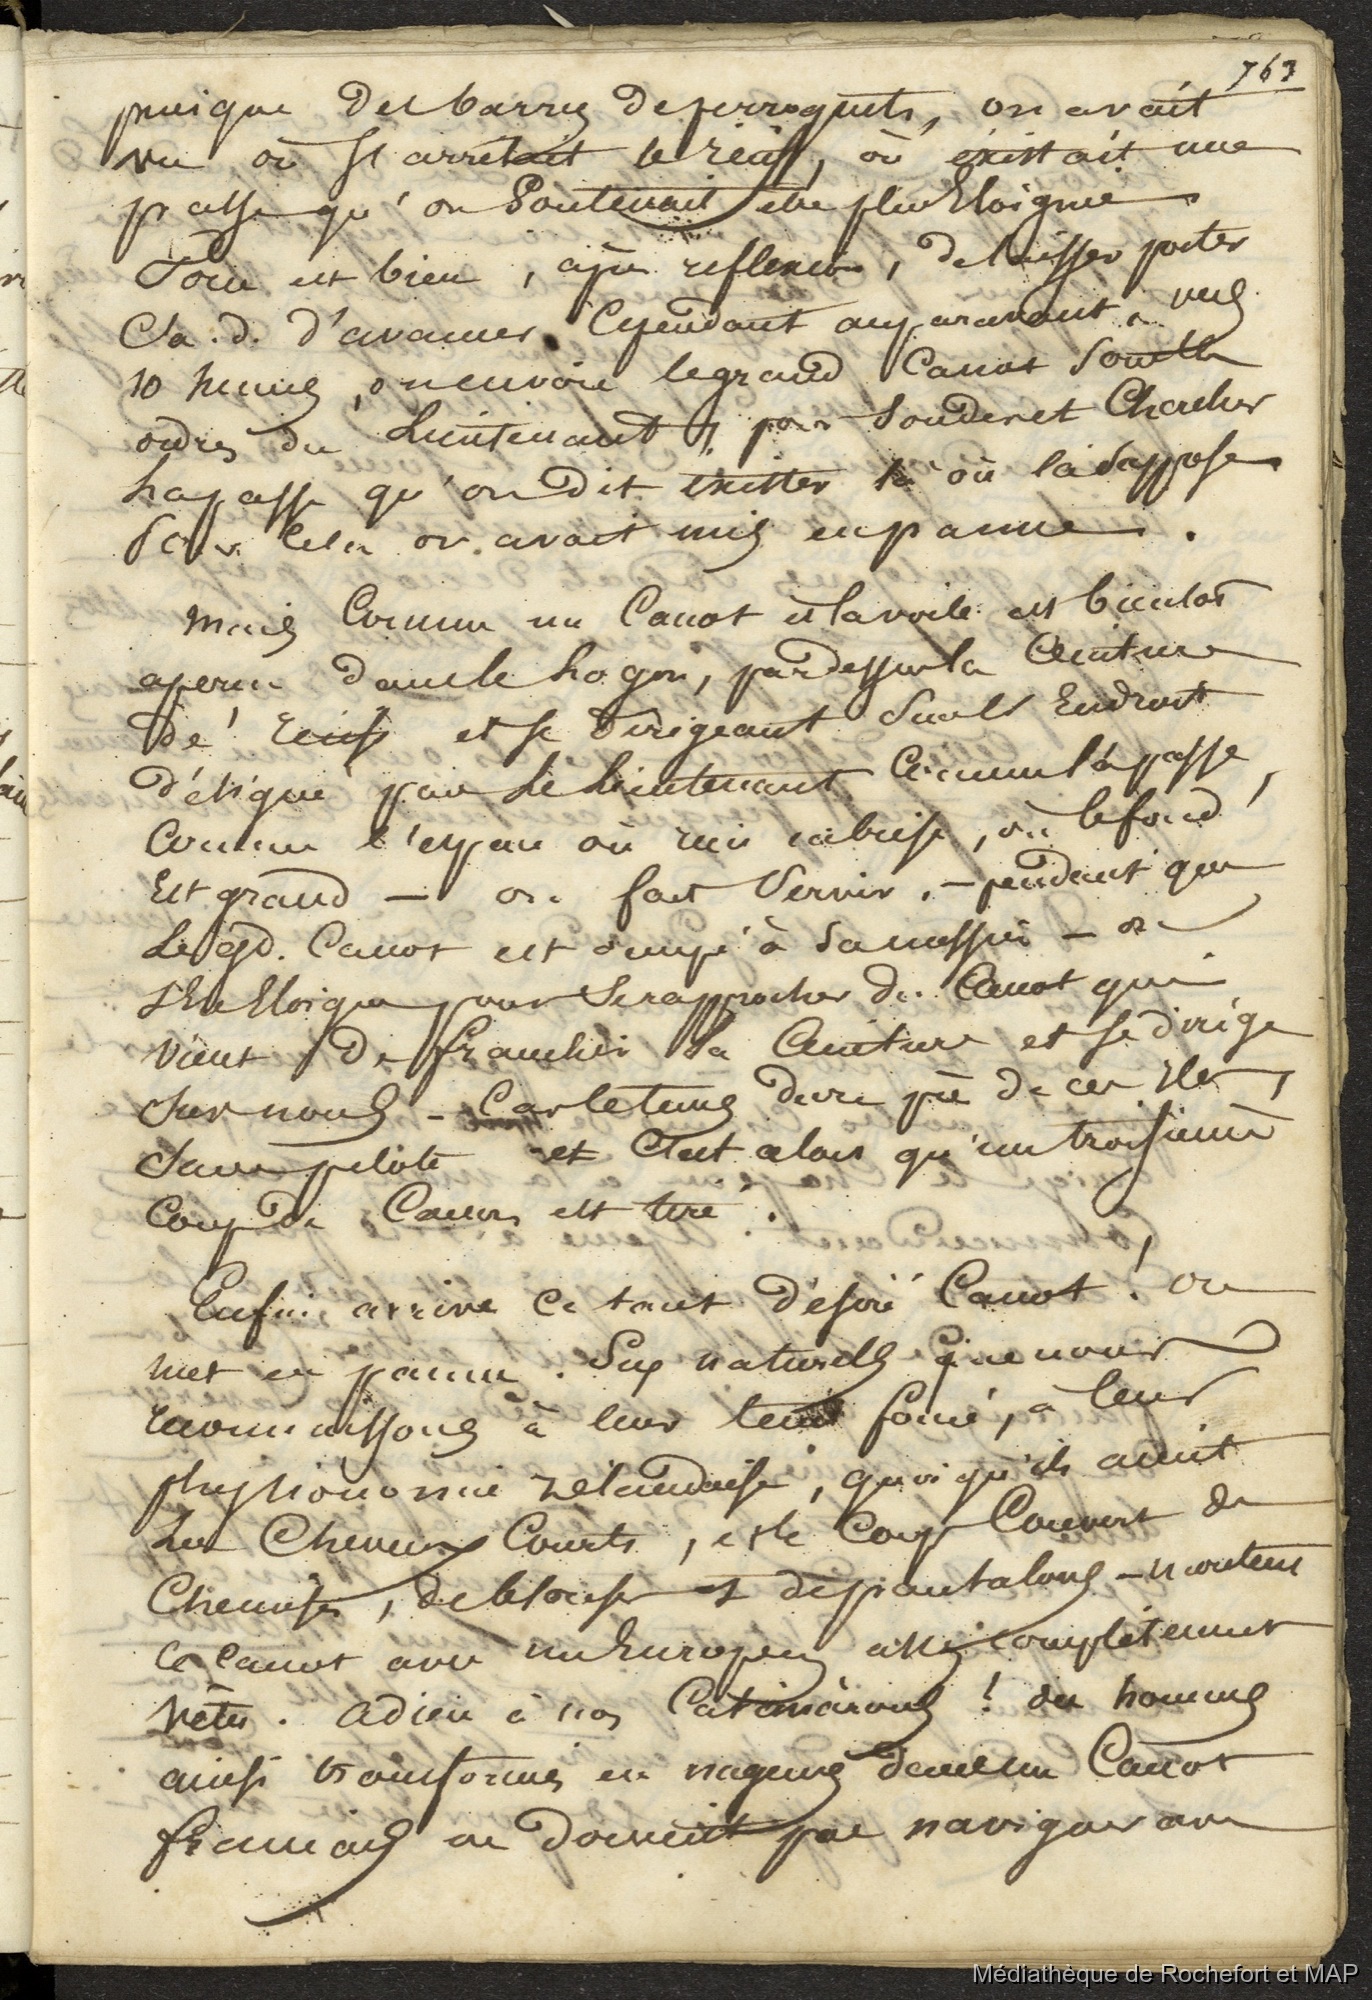 763
puisque des barres de perroquets, on avait
vu où s'arrêtait le récif, où existait une
passe qu'on soutenait être plus éloignée
Tout est bien, après réflexion, de laisser porter
C.a.d. d'avancer. Cependant auparavant, vers
10 heures, on envoie le grand Canot sous les
ordres du Lieutenant, pour sonder et Chercher
la passe qu'on dit exister là où l'a suppose
Pour cela on avait mis en panne.
Mais Comme un Canot à la voile est bientôt
aperçu dans le Lagon, par dessus la Ceinture
de Récifs et se dirigeant sur l'Endroit
désigné par le Lieutenant Comme la passe,
Comme l'espace où rien ne brise, où le fond
Est grand — on fait servir. — pendant que
Le gd. Canot est occupé à sa mission — on
s'en Eloigne pour se rapprocher du Canot qui
vient de franchir la Ceinture et se dirige
sur nous — Car le temps dure près de ces Iles,
sans pilote et C'est alors qu'un troisième
Coup de Canon est tiré.
Enfin, arrive ce tant désiré Canot! on
met en panne. Six naturels que nous
reconnaissons à leur teint foncé, à leur
physionomie zélandaise, quoiqu'ils aient
les Cheveux Courts, et le Corps Couvert de
Chemises, de blouses et de pantalons — montent
ce canot avec un Européen assez complètement
vêtu. adieu à nos Catimarons! des hommes
ainsi transformés en nageurs dans un Canot
français ne doivent pas naviguer avec
Médiathèque de Rochefort et MAP